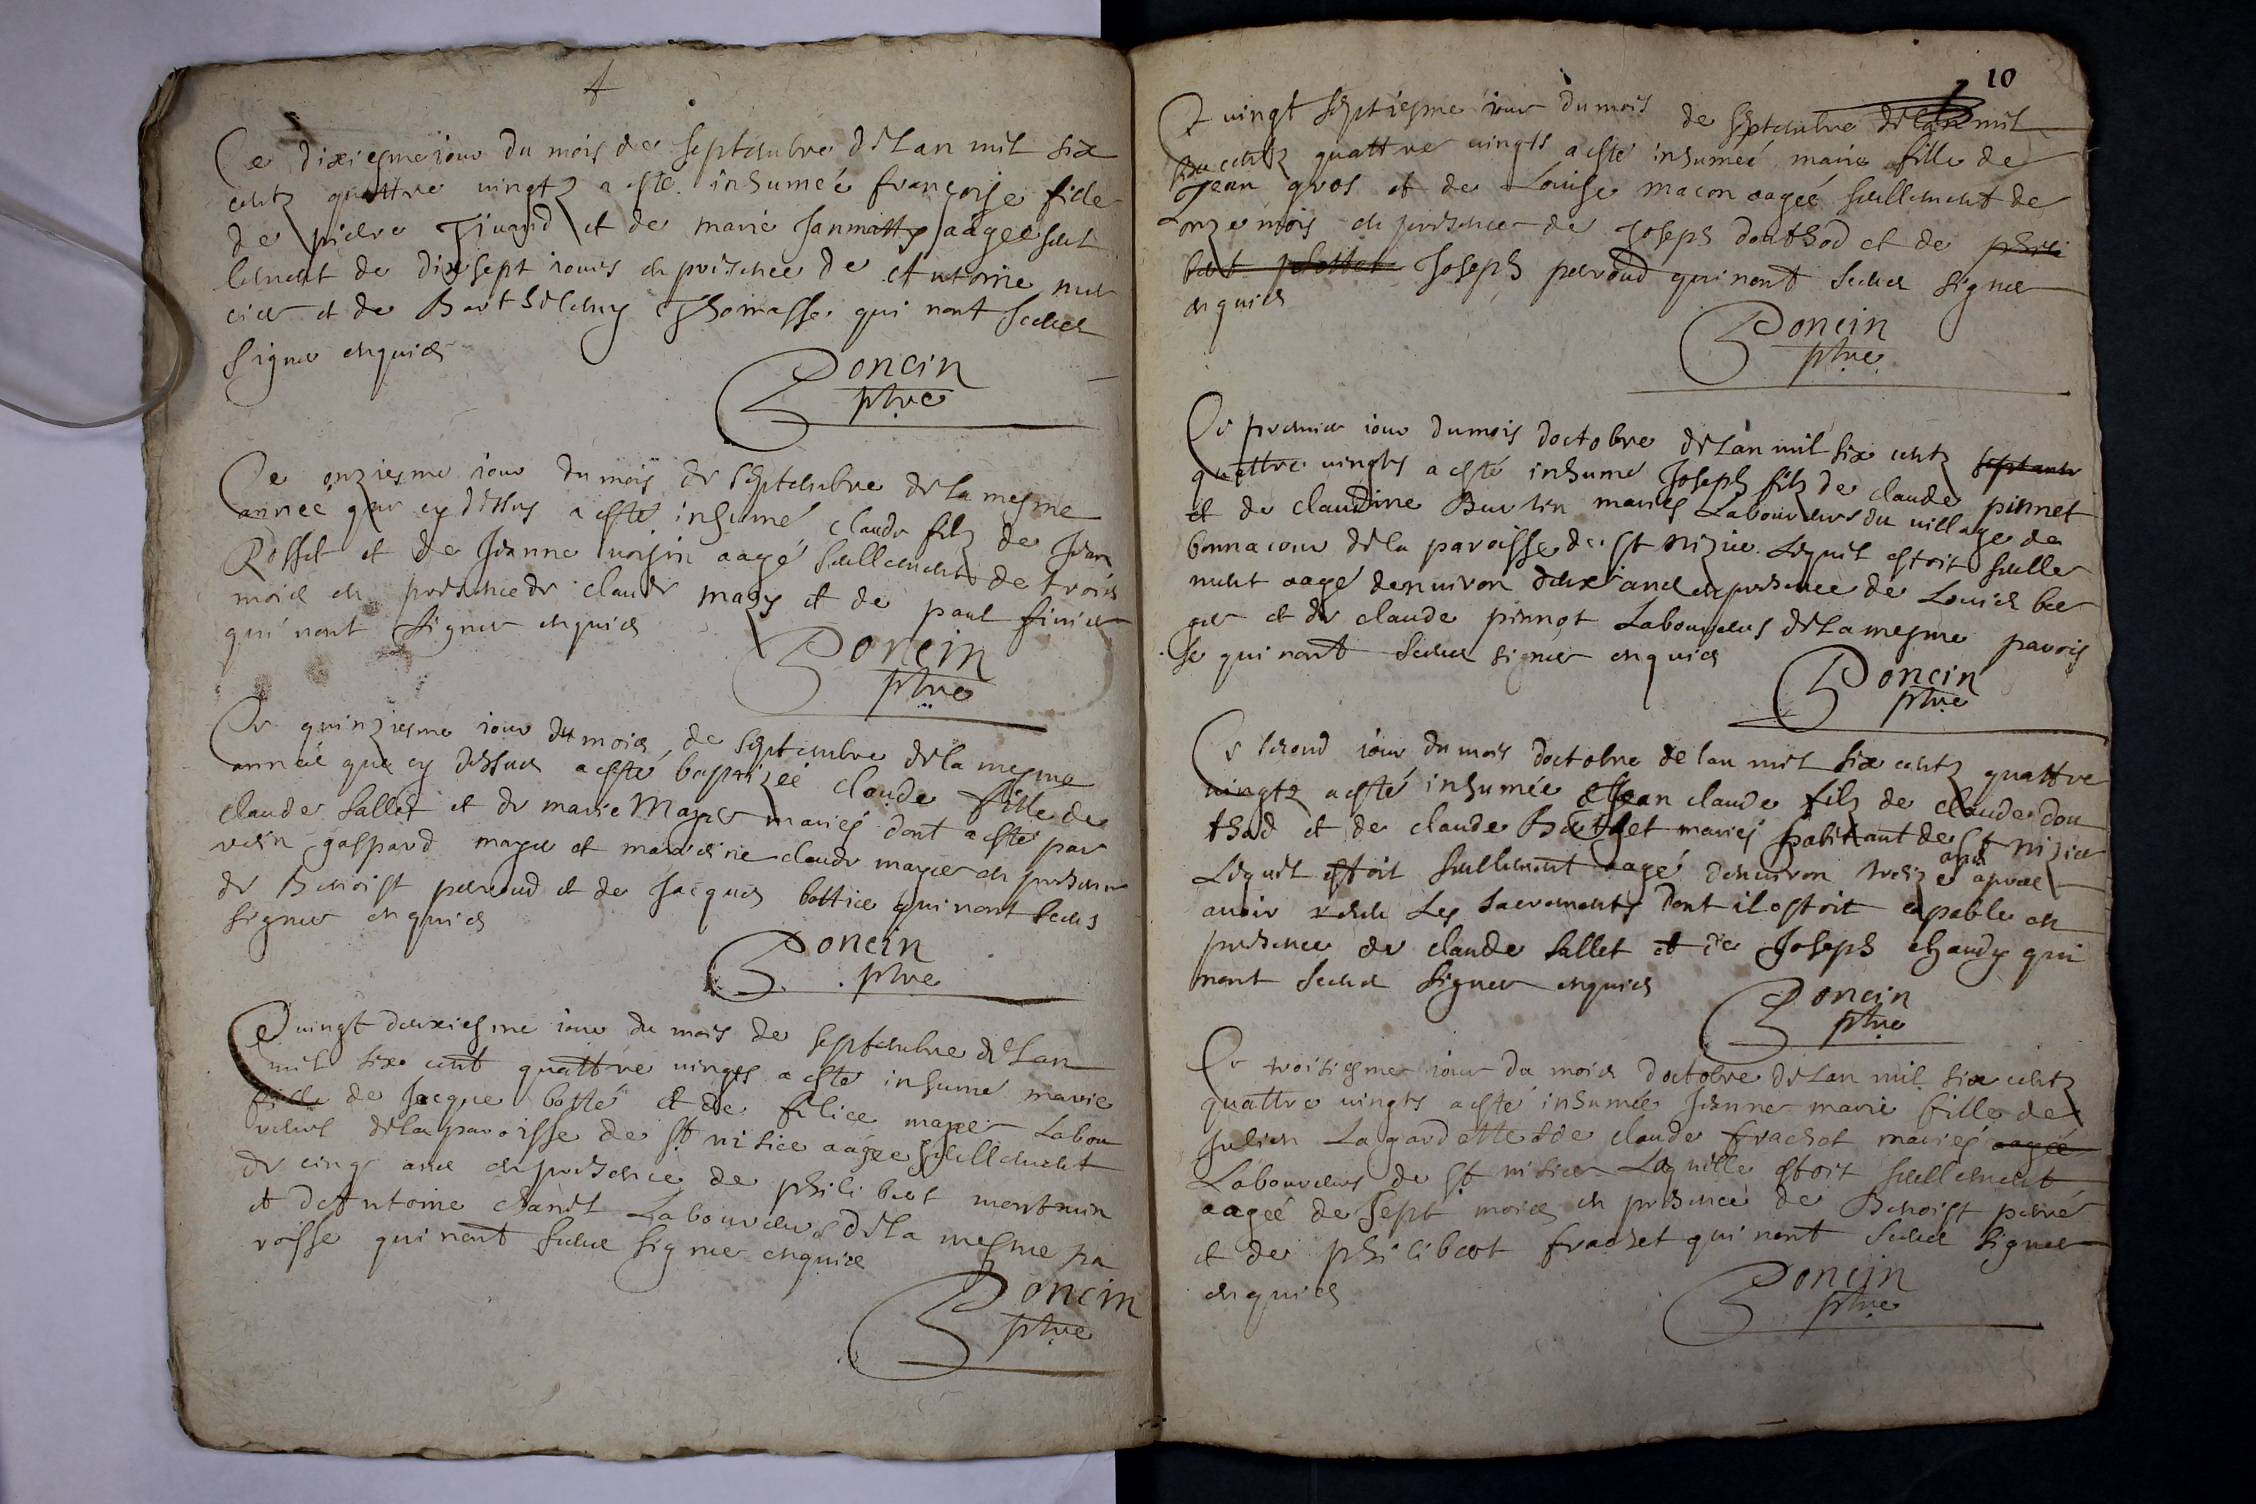 Ce dixiesme iour du mois de septembre de lan mil six
centz quattre vingtz a esté inhumée francoise fille
de pierre Tivand et de marie Janmatty aagée seul
lement de dix sept iours en presence de Antoine mer
cier et de Barthelemy Thomasse qui nont sceus
signer enquis
Poncin
ptre
Ce onziesme iour du mois de septembre de la mesme
année que cy dessus a esté inhumé claude filz de Jean
Rosset et de Jeanne voisin aagé seullement de trois
mois en presence de claude mary et de paul
qui nont signer enquis
Poncin
ptre
Ce quinziesme iour du mois de septembre de la mesme
année que cy dessus a esté baptizée claude fille de
claude sallet et de marie Mayer mariés dont a esté par
rein gaspard mayer et marreine claude mayer en presence
de Benoist perroud et de Jacques bottier qui nont sceus
signer enquis
Poncin
ptre
Ce vingt deuxiesme iour du mois de septembre de lan
mil six cent quattre vingts a esté inhumé marie
fille de Jacque botté et de filice mayer labou
reurs de la paroisse de st nisier aagée seullement
de cinq ans en presence de philibert montmin
et de Antoine chanel laboureurs de la mesme pa
roisse qui nont sceus signer enquis
Poncin
ptre
10
Ce vingt septiesme iour du mois de septembre de lan mil
six centz quattre vingts a esté inhumée marie fille de
Jean gros et de Louise macon aagée seullement de
onze mois en presence de Joseph douthod et de phili
bert Joseph perroud qui nont sceus signer
enquis
Poncin
ptre
Ce premier iour du mois doctobre de lan mil six centz septante
quattre vingts a esté inhumé Joseph filz de claude pinnet
et de claudine Burlin mariés Laboureurs du village de
bonnacour de la paroisse de st nizier Lequel estoit seulle
ment aagé denviron deux ans en presence de Louis ber
ger et de claude pinnot Laboureurs de la mesme parois
se qui nont sceus signer enquis
Poncin
ptre
Ce second iour du mois doctobre de lan mil six centz quattre
vingtz a esté inhumée Jean claude filz de claude dou
thod et de claude Berthet mariés habitant de st nizier
Lequel estoit seullement aagé denviron treize ans apres
avoir receu Les sacrements dont il estoit capable en
presence de claude sallet et de Joseph chandy qui
nont sceus signer enquis
Poncin
ptre
Ce troisiesme iour du mois doctobre de lan mil six centz
quattre vingts a esté inhumée Jeanne marie fille de
Julien Lagardette et de claude frachet mariés aagée
Laboureurs de st nisier Laquelle estoit seullement
aagée de sept mois en presence de Benoist perré
et de philibert frachet qui nont sceus signer
enquis
Poncin
ptre